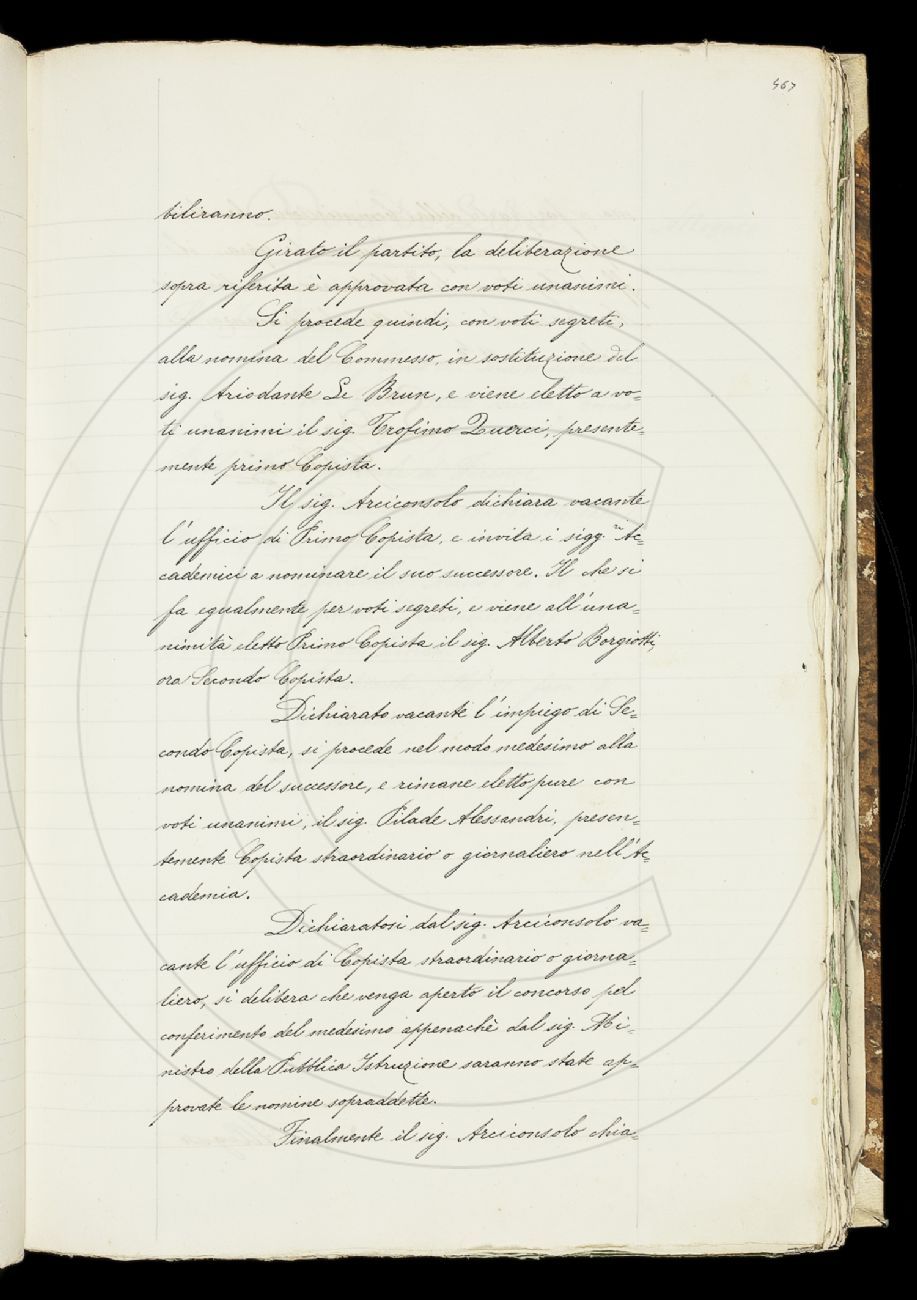 567
biliranno.
Girato il partito, la deliberazione
sopra riferita è approvata con voti unanimi.
Si procede quindi, con voti segreti,
alla nomina del Commesso, in sostituzione del
sig. Ariodante Le Brun, e viene eletto a vo=
ti unanimi il sig. Trofimo Querci, presente=
mente primo Copista.
Il sig. Arciconsolo dichiara vacante
l'ufficio di Primo Copista, e invita i sigg.ri Ac=
cademici a nominare il suo successore. Il che si
fa egualmente per voti segreti, e viene all'una=
nimità eletto Primo Copista il sig. Alberto Borgiotti,
ora Secondo Copista.
Dichiarato vacante l'impiego di Se=
condo Copista, si procede nel modo medesimo alla
nomina del successore, e rimane eletto pure con
voti unanimi, il sig. Pilade Alessandri, presen=
temente Copista straordinario o giornaliero nell'Ac=
cademia.
Dichiaratosi dal sig. Arciconsolo va=
cante l'ufficio di Copista straordinario o giorna=
liero, si delibera che venga aperto il concorso pel
conferimento del medesimo appenachè dal sig. Mi=
nistro della Pubblica Istruzione saranno state ap=
provate le nomine sopraddette.
Finalmente il sig. Arciconsolo chia=